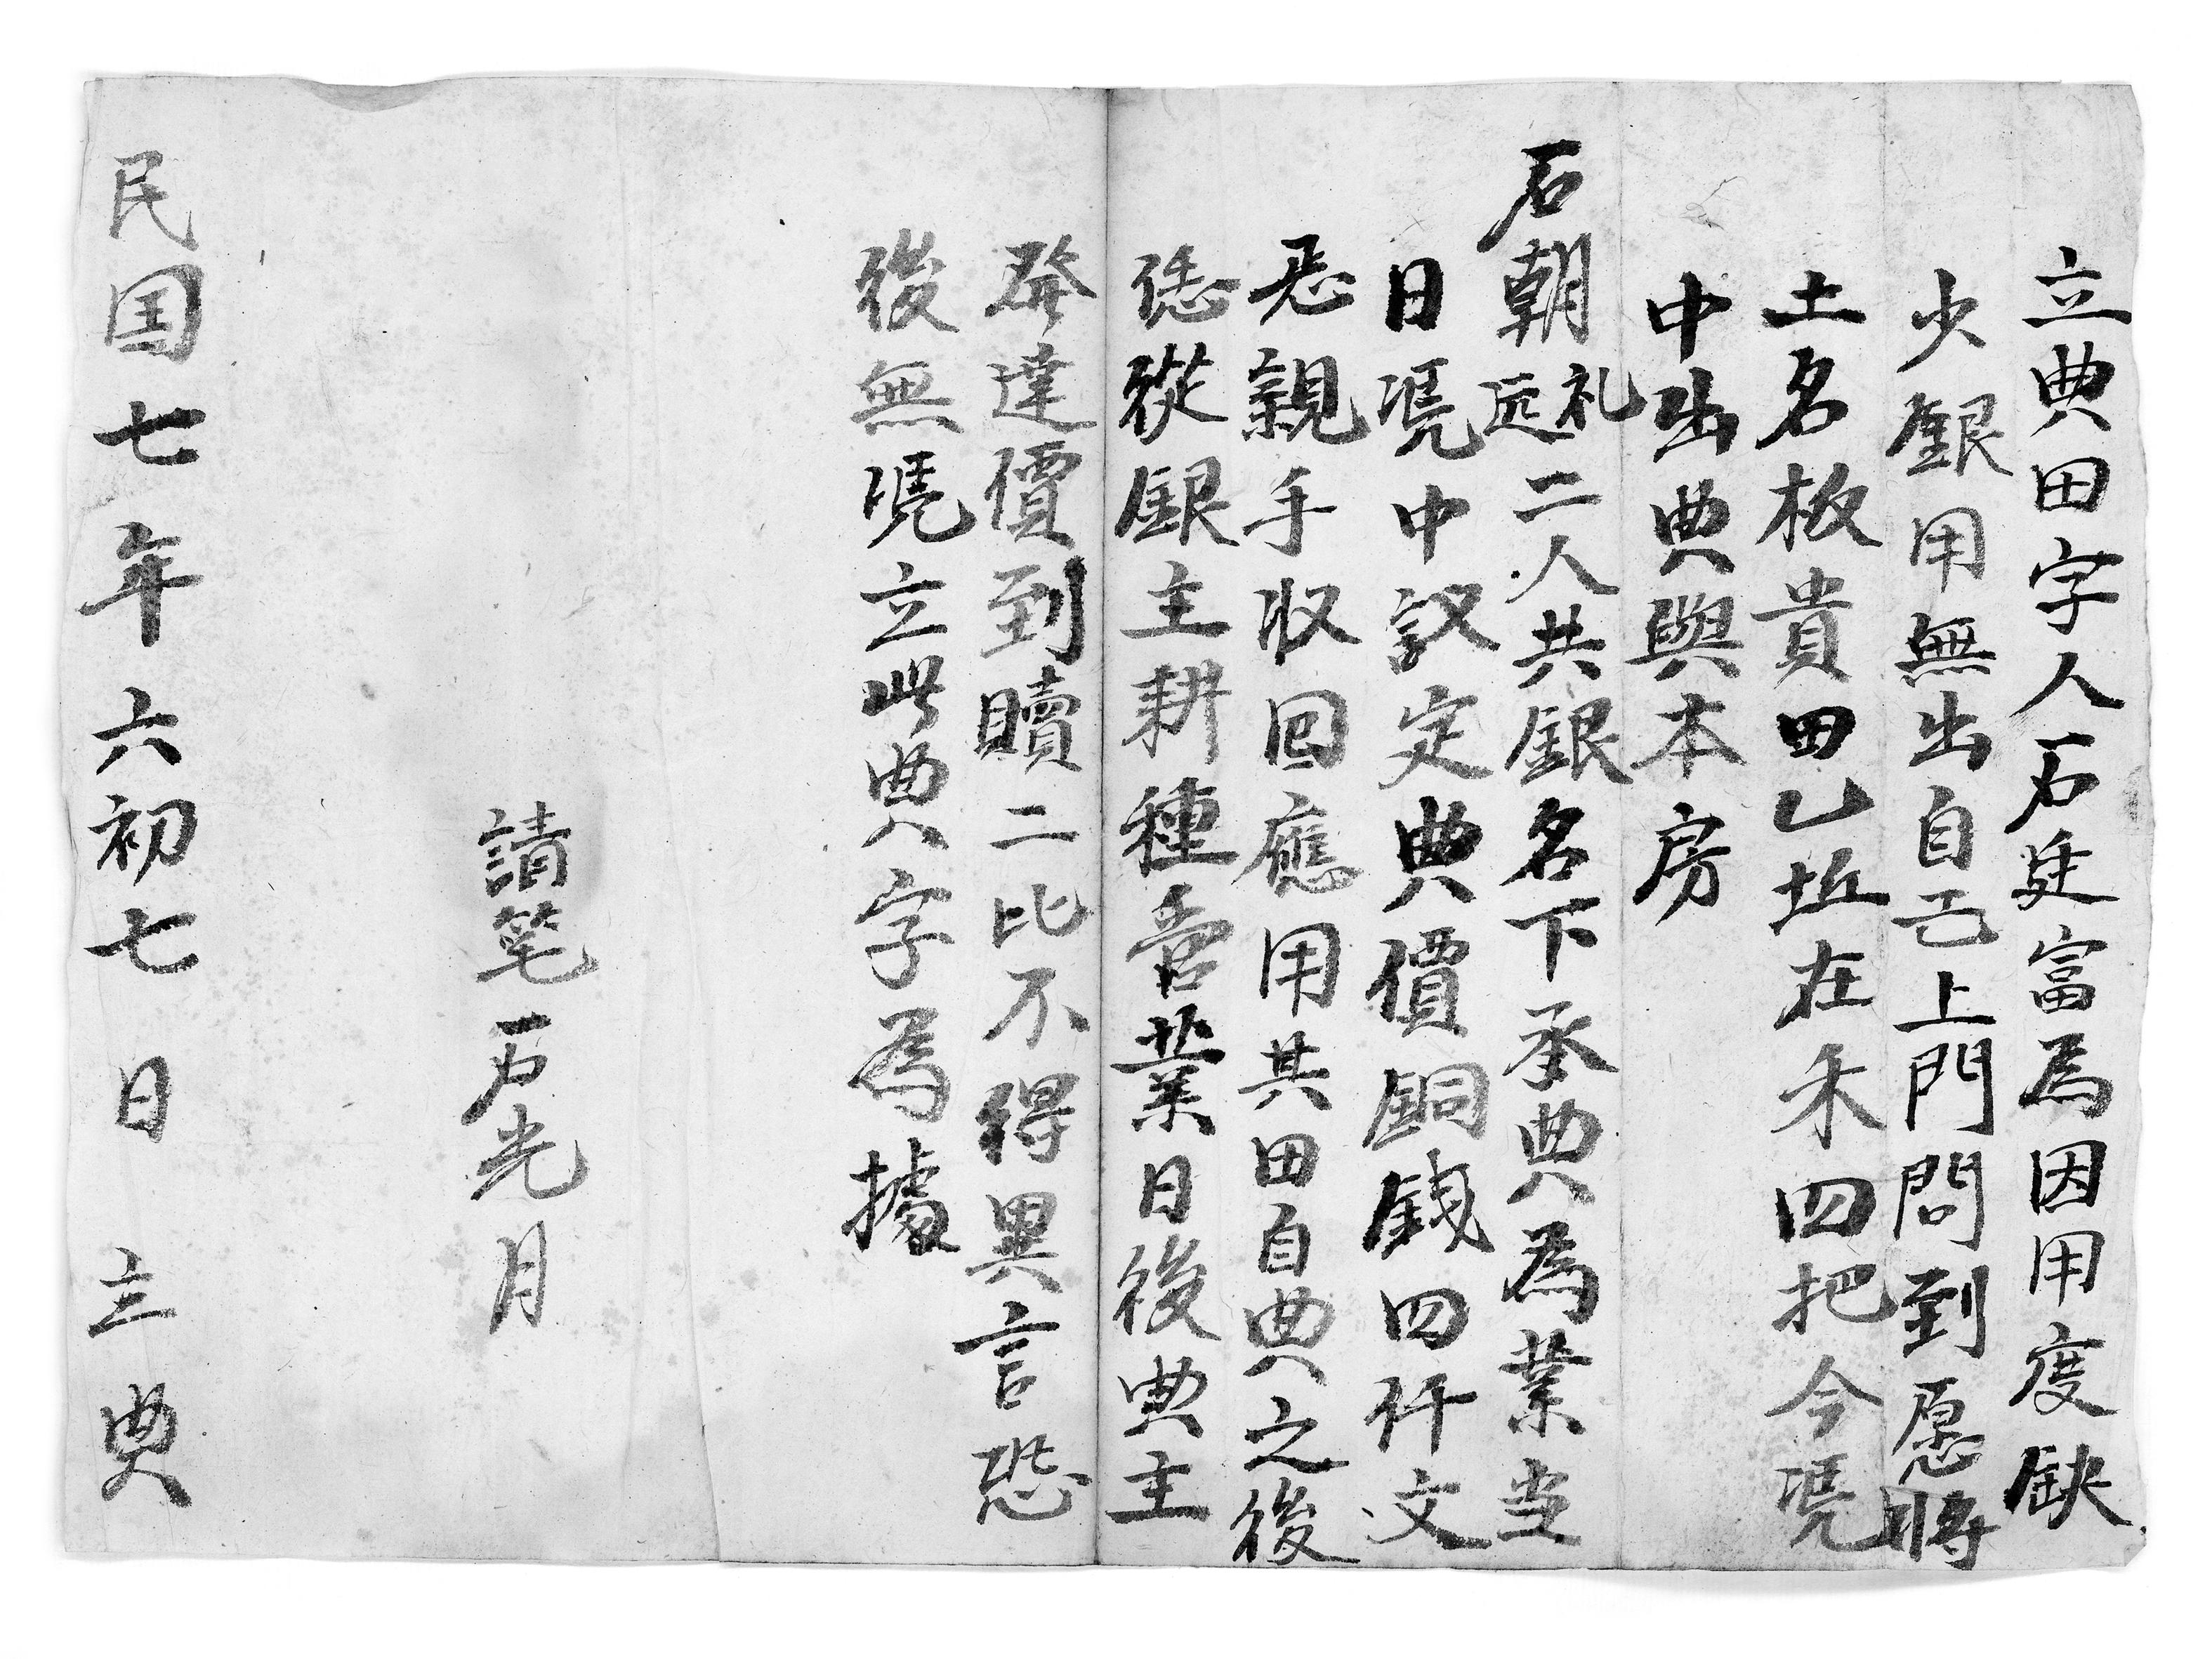 立典田字人石廷富爲因用度缺
少銀用無出自己上門問到愿將
土名板貴田乙坵在禾四把今凴
中出典與本房
石朝礼远二人共銀名下承典為業当
日凴中议定典價銅銭四仟文
恁親手收回應用其田自典之後
恁從銀主耕種晉業日後典主
發達價到贖二比不得異言恐
後無凴立此典字為據
請笔石光月
民国七年六初七日立典